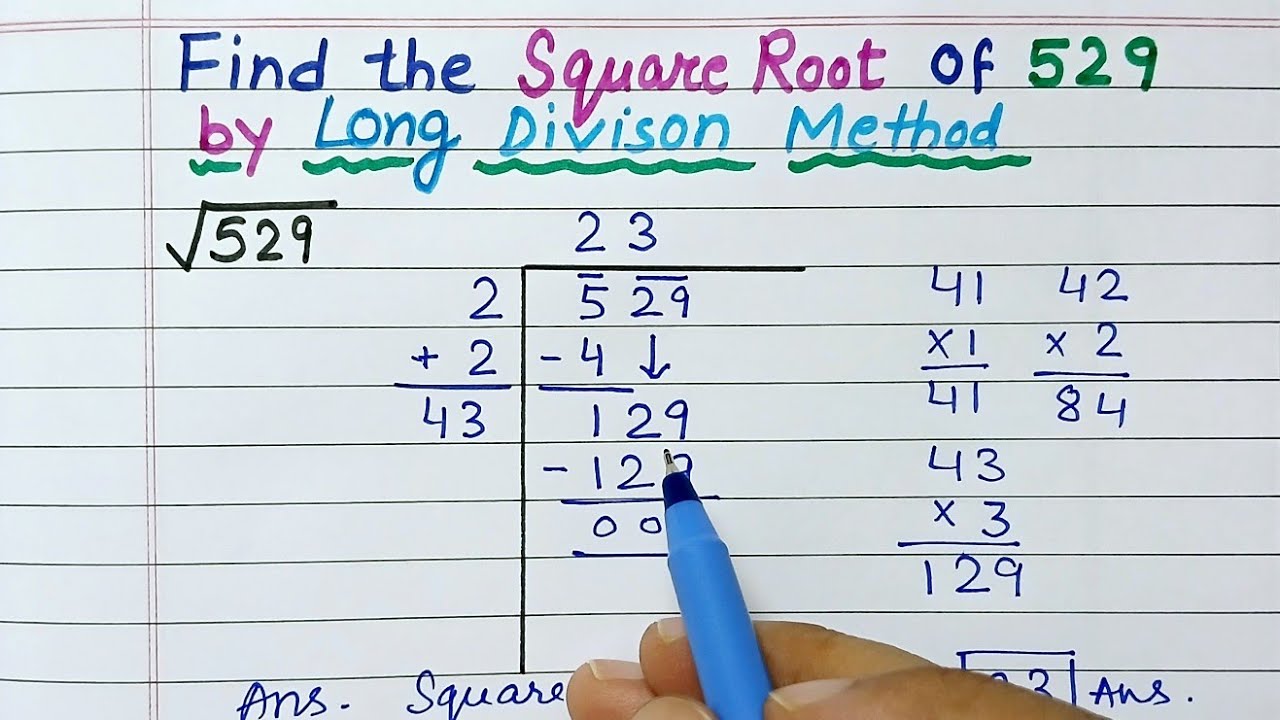 Find the Square Root of 529
by Long Divison Method
√529
23
2 5 29
+ 2 - 4 ↓
43 129
- 129
00
41 42
x 1 x 2
41 84
43
x 3
129
Ans. Square Ans.